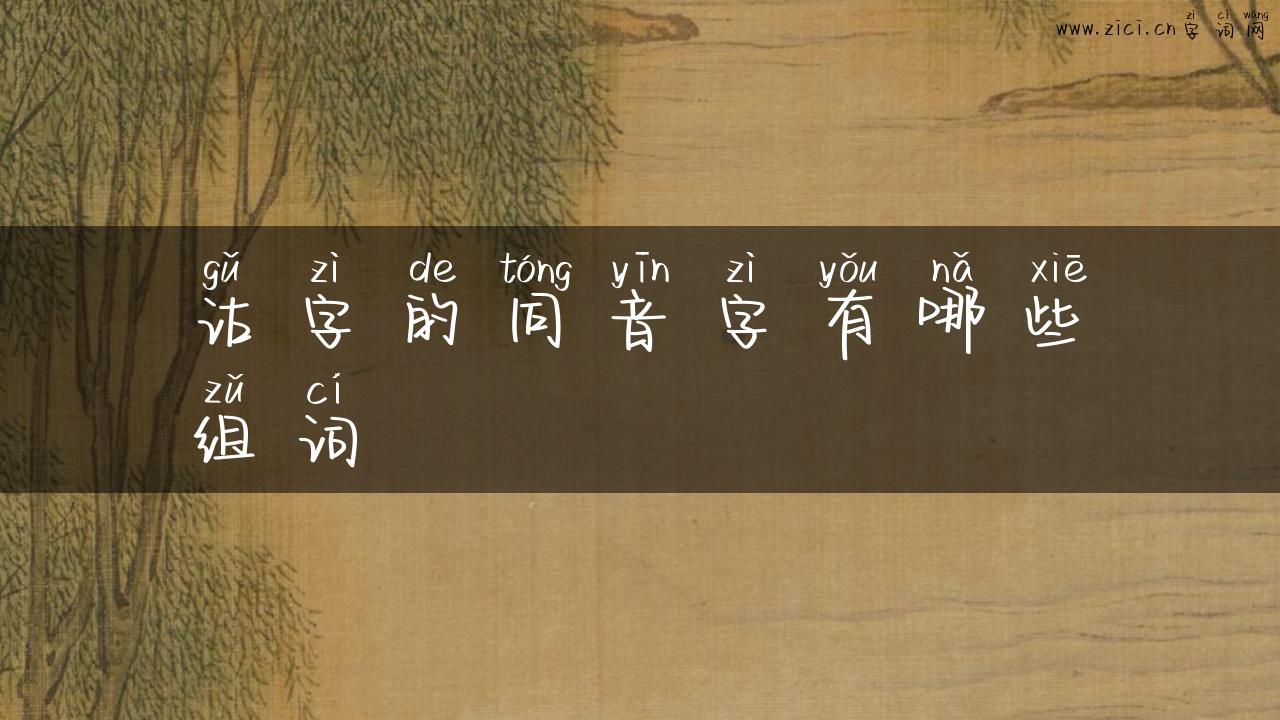 zì cí wǎng
www.zici.cn字词网
gǔ zì de tóng yīn zì yǒu nǎ xiē
诂字的同音字有哪些
zǔ cí
组词